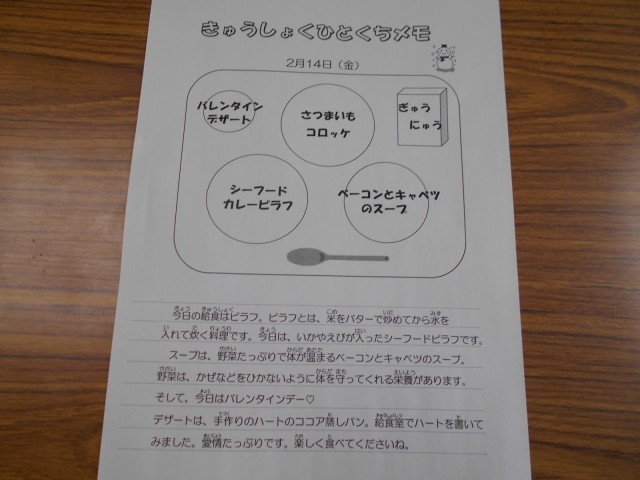 きゅうしょくひとくちメモ
2月14日（金）
バレンタイン
デザート
さつまいも
コロッケ
ぎゅう
にゅう
シーフード
カレーピラフ
ベーコンとキャベツ
のスープ
今日の給食はピラフ。ピラフとは、米をバターで炒めてから水を
入れて炊く料理です。今日は、いかやえびが入ったシーフードピラフです。
スープは、野菜たっぷりで体が温まるベーコンとキャベツのスープ。
野菜は、かぜなどをひかないように体を守ってくれる栄養があります。
そして、今日はバレンタインデー♡
デザートは、手作りのハートのココア蒸しパン。給食室でハートを書いて
みました。愛情たっぷりです。楽しく食べてくださいね。